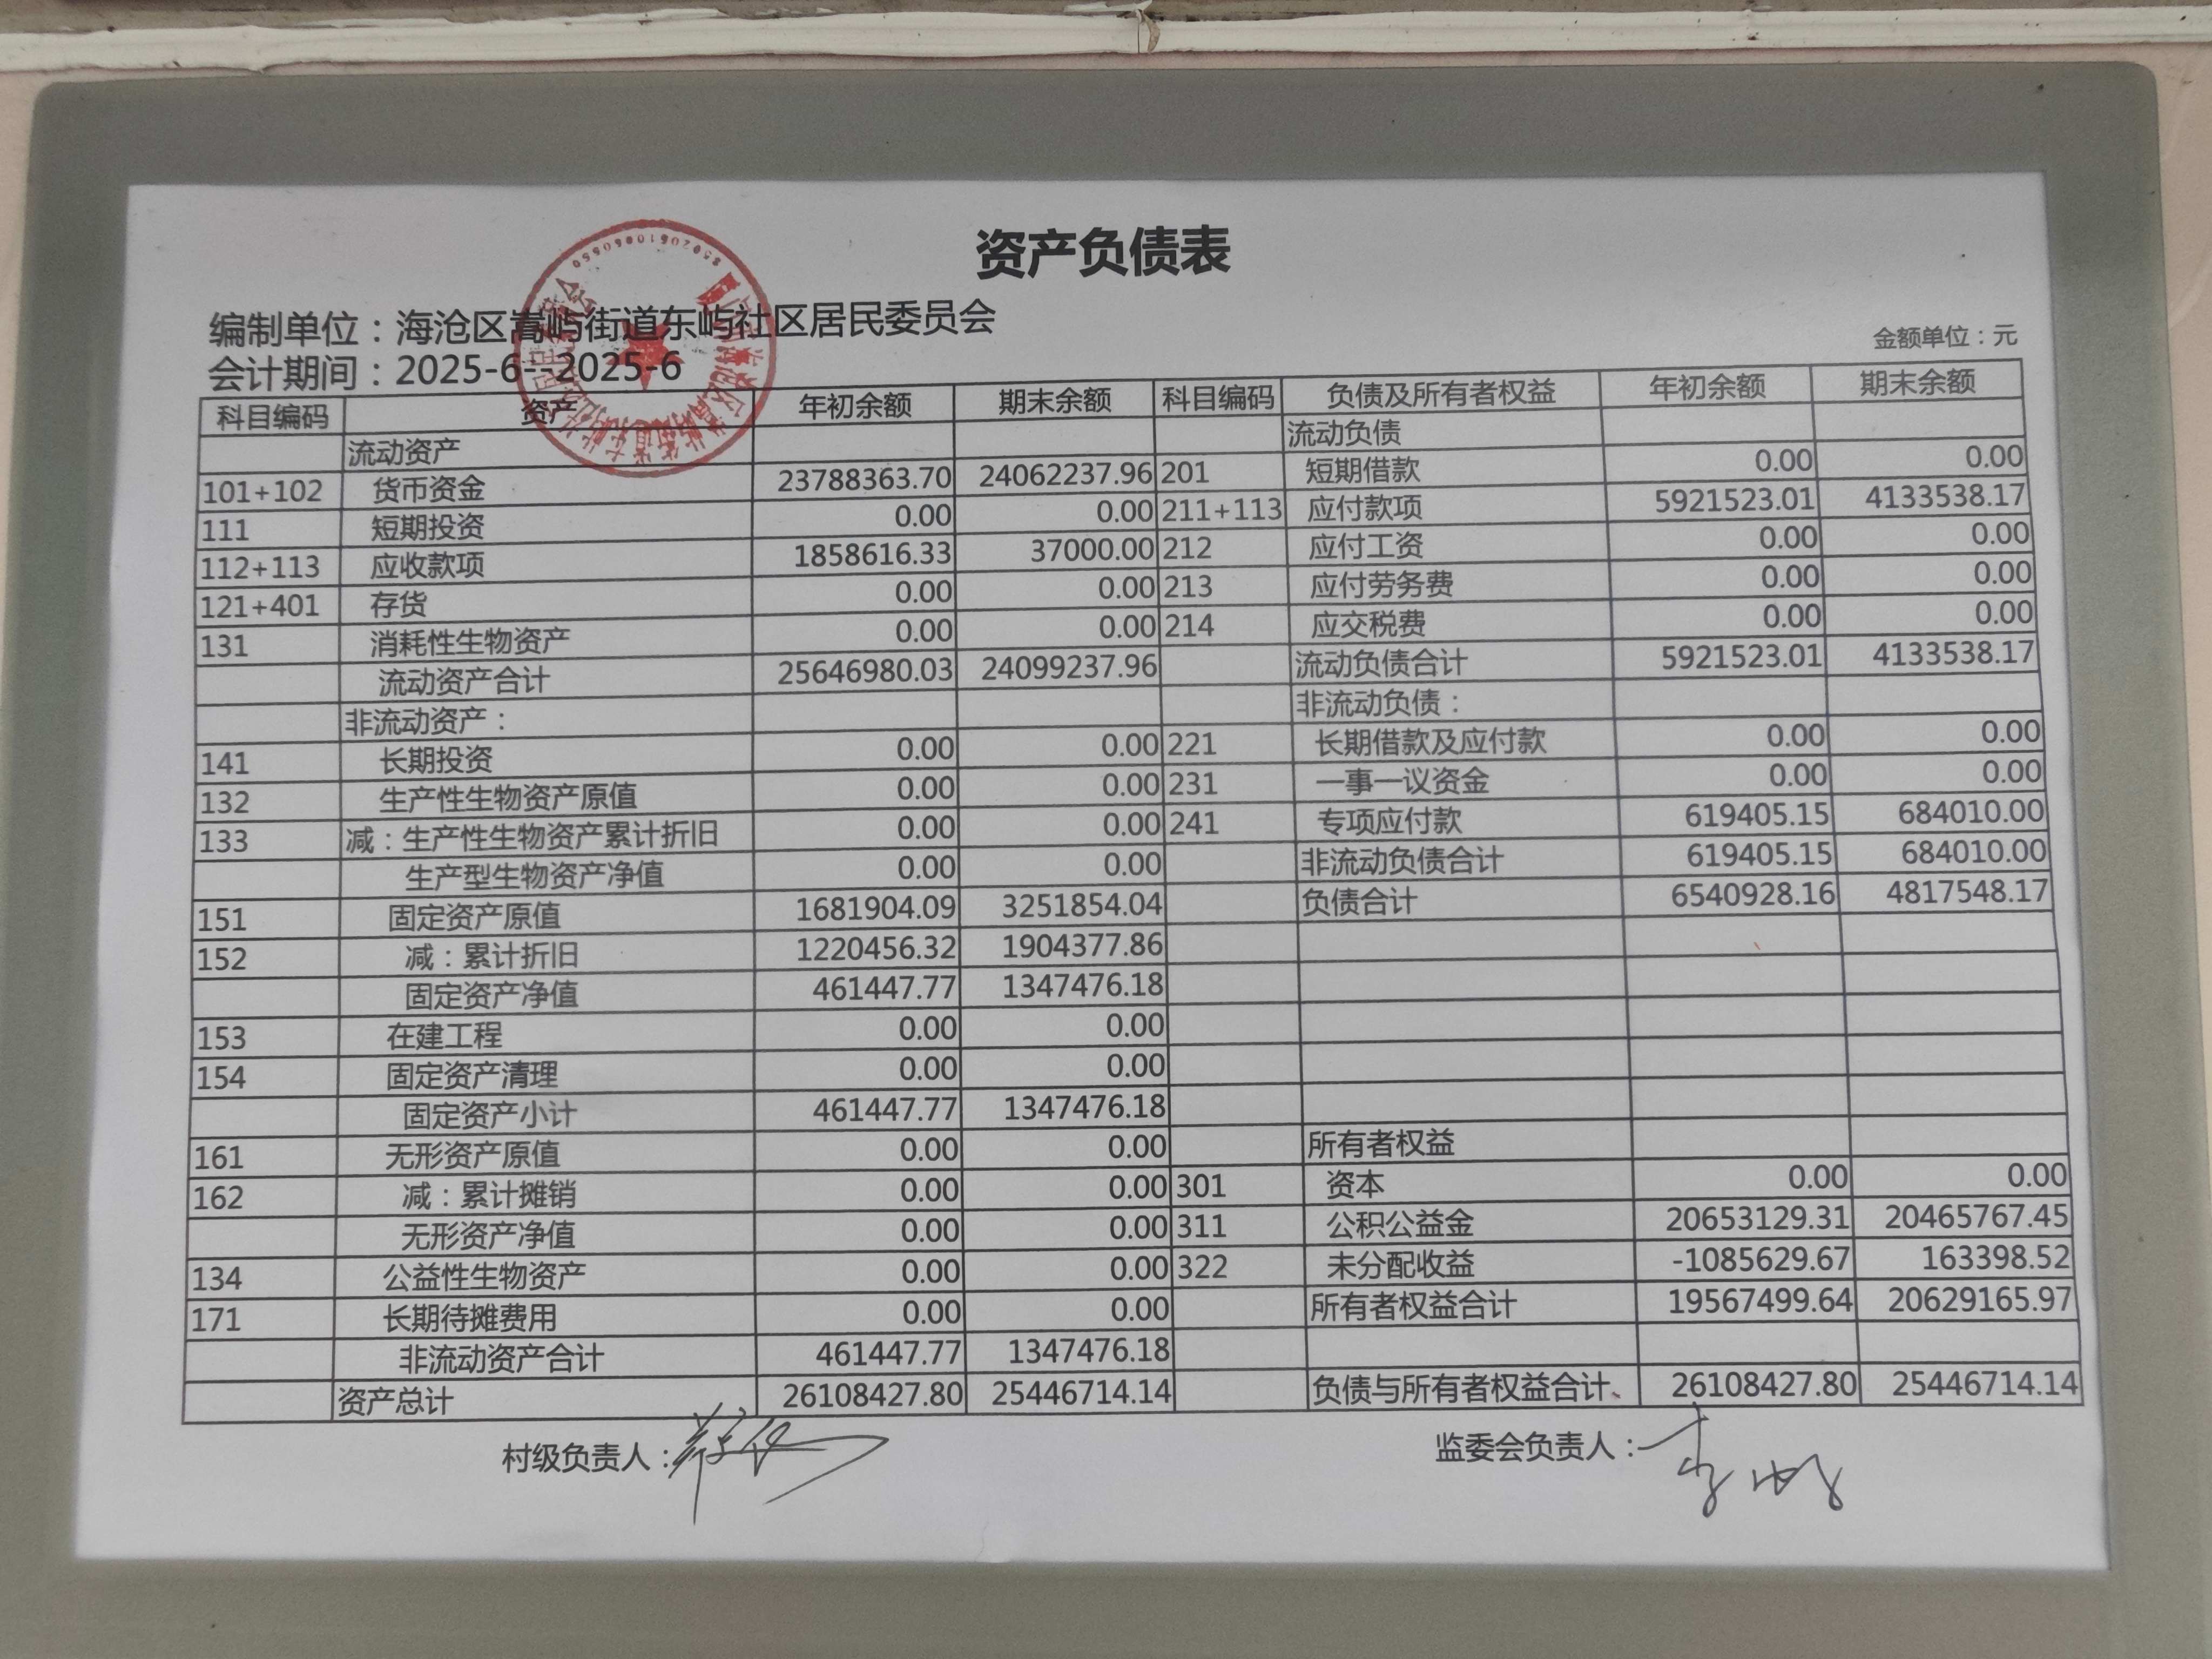 资产负债表
编制单位：海沧区嵩屿街道东屿社区居民委员会
金额单位：元
会计期间：2025-6--2025-6
科目编码 资产 年初余额 期末余额 科目编码 负债及所有者权益 年初余额 期末余额
流动资产 流动负债
101+102 货币资金 23788363.70 24062237.96 201 短期借款 0.00 0.00
111 短期投资 0.00 0.00 211+113 应付款项 5921523.01 4133538.17
112+113 应收款项 1858616.33 37000.00 212 应付工资 0.00 0.00
121+401 存货 0.00 0.00 213 应付劳务费 0.00 0.00
131 消耗性生物资产 0.00 0.00 214 应交税费 0.00 0.00
流动资产合计 25646980.03 24099237.96 流动负债合计 5921523.01 4133538.17
非流动资产： 非流动负债：
141 长期投资 0.00 0.00 221 长期借款及应付款 0.00 0.00
132 生产性生物资产原值 0.00 0.00 231 一事一议资金 0.00 0.00
133 减：生产性生物资产累计折旧 0.00 0.00 241 专项应付款 619405.15 684010.00
生产型生物资产净值 0.00 0.00 非流动负债合计 619405.15 684010.00
151 固定资产原值 1681904.09 3251854.04 负债合计 6540928.16 4817548.17
152 减：累计折旧 1220456.32 1904377.86
固定资产净值 461447.77 1347476.18
153 在建工程 0.00 0.00
154 固定资产清理 0.00 0.00
固定资产小计 461447.77 1347476.18
161 无形资产原值 0.00 0.00 所有者权益
162 减：累计摊销 0.00 0.00 301 资本 0.00 0.00
无形资产净值 0.00 0.00 311 公积公益金 20653129.31 20465767.45
134 公益性生物资产 0.00 0.00 322 未分配收益 -1085629.67 163398.52
171 长期待摊费用 0.00 0.00 所有者权益合计 19567499.64 20629165.97
非流动资产合计 461447.77 1347476.18
资产总计 26108427.80 25446714.14 负债与所有者权益合计 26108427.80 25446714.14
村级负责人： 监委会负责人：